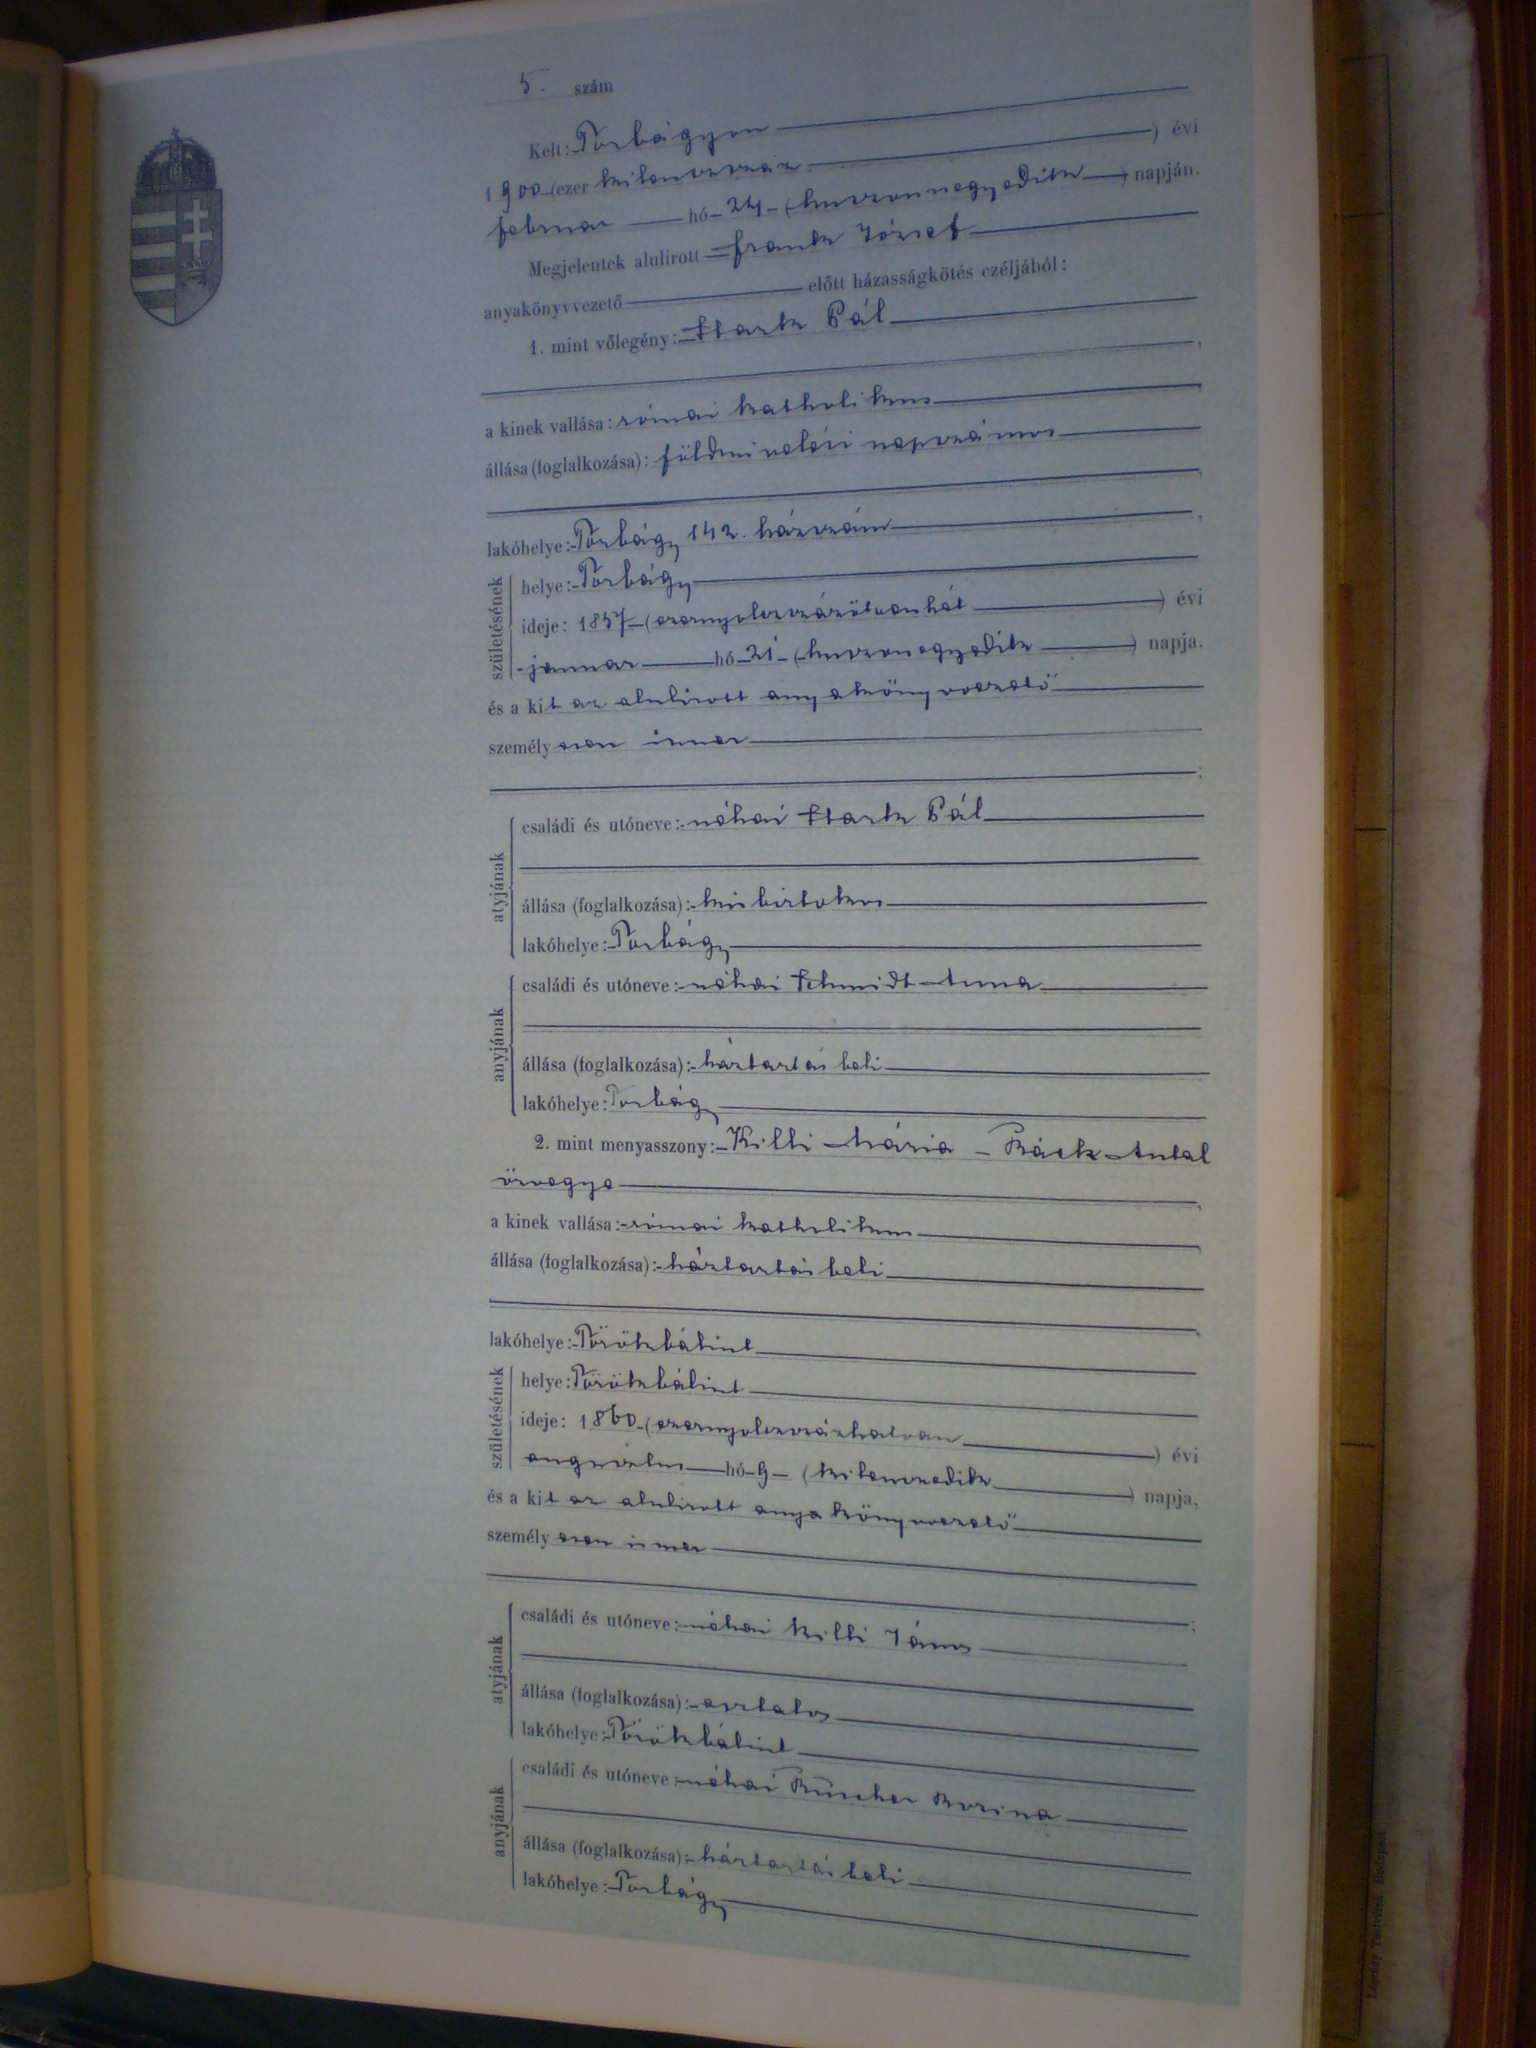 5. szám
Kelt: Torbágyon
1900 (ezer kilenczszáz) évi
február hó 24 (huszonnegyedik) napján.
Megjelentek alulirott Frank József
anyakönyvvezető előtt házasságkötés czéljából:
1. mint vőlegény: Stark Pál
a kinek vallása: római katholikus
állása (foglalkozása): földmivelési napszámos
lakóhelye: Torbágy 142. házszám
születésének
helye: Torbágy
ideje: 1857 (ezernyolczszázötvenhét) évi
január hó 21 (huszonegyedik) napja.
és a kit az alulirott anyakönyvvezető
személyesen ismer
atyjának
családi és utóneve: néhai Stark Pál
állása (foglalkozása): kisbirtokos
lakóhelye: Torbágy
anyjának
családi és utóneve: néhai Schmidt Anna
állása (foglalkozása): háztartásbeli
lakóhelye: Torbágy
2. mint menyasszony: Killi Mária - Ráck Antal
özvegye
a kinek vallása: római katholikus
állása (foglalkozása): háztartásbeli
lakóhelye: Törökbálint
születésének
helye: Törökbálint
ideje: 1860 (ezernyolczszázhatvan) évi
augusztus hó 9 (kilenczedik) napja,
és a kit az alulirott anyakönyvvezető
személyesen ismer
atyjának
családi és utóneve: néhai Killi János
állása (foglalkozása): asztalos
lakóhelye: Törökbálint
anyjának
családi és utóneve: néhai Rozina
állása (foglalkozása): háztartásbeli
lakóhelye: Torbágy
Légrády Testvérek Budapest